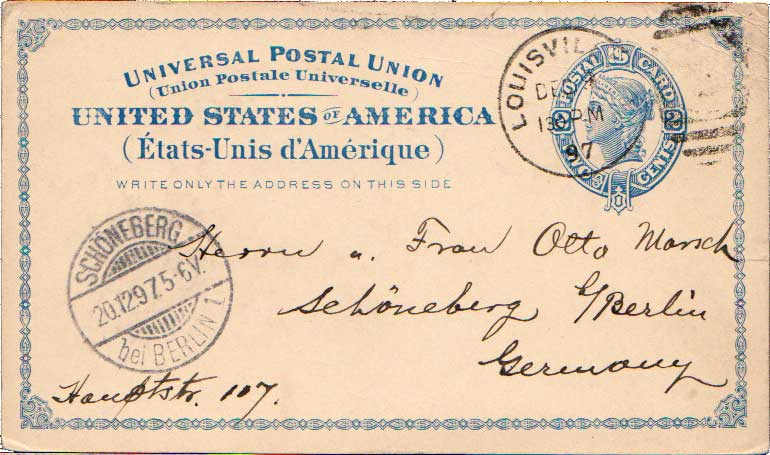 UNIVERSAL POSTAL UNION
(Union Postale Universelle)
UNITED STATES OF AMERICA
(États-Unis d'Amérique)
WRITE ONLY THE ADDRESS ON THIS SIDE
POSTAL CARD
TWO CENTS
LOUISVIL
DE
130 PM
97
SCHÖNEBERG
20.12.97.5-6V.
bei BERLIN 1
Herrn u. Frau Otto March
Schöneberg b/Berlin
Germany
Hauptstr. 107.